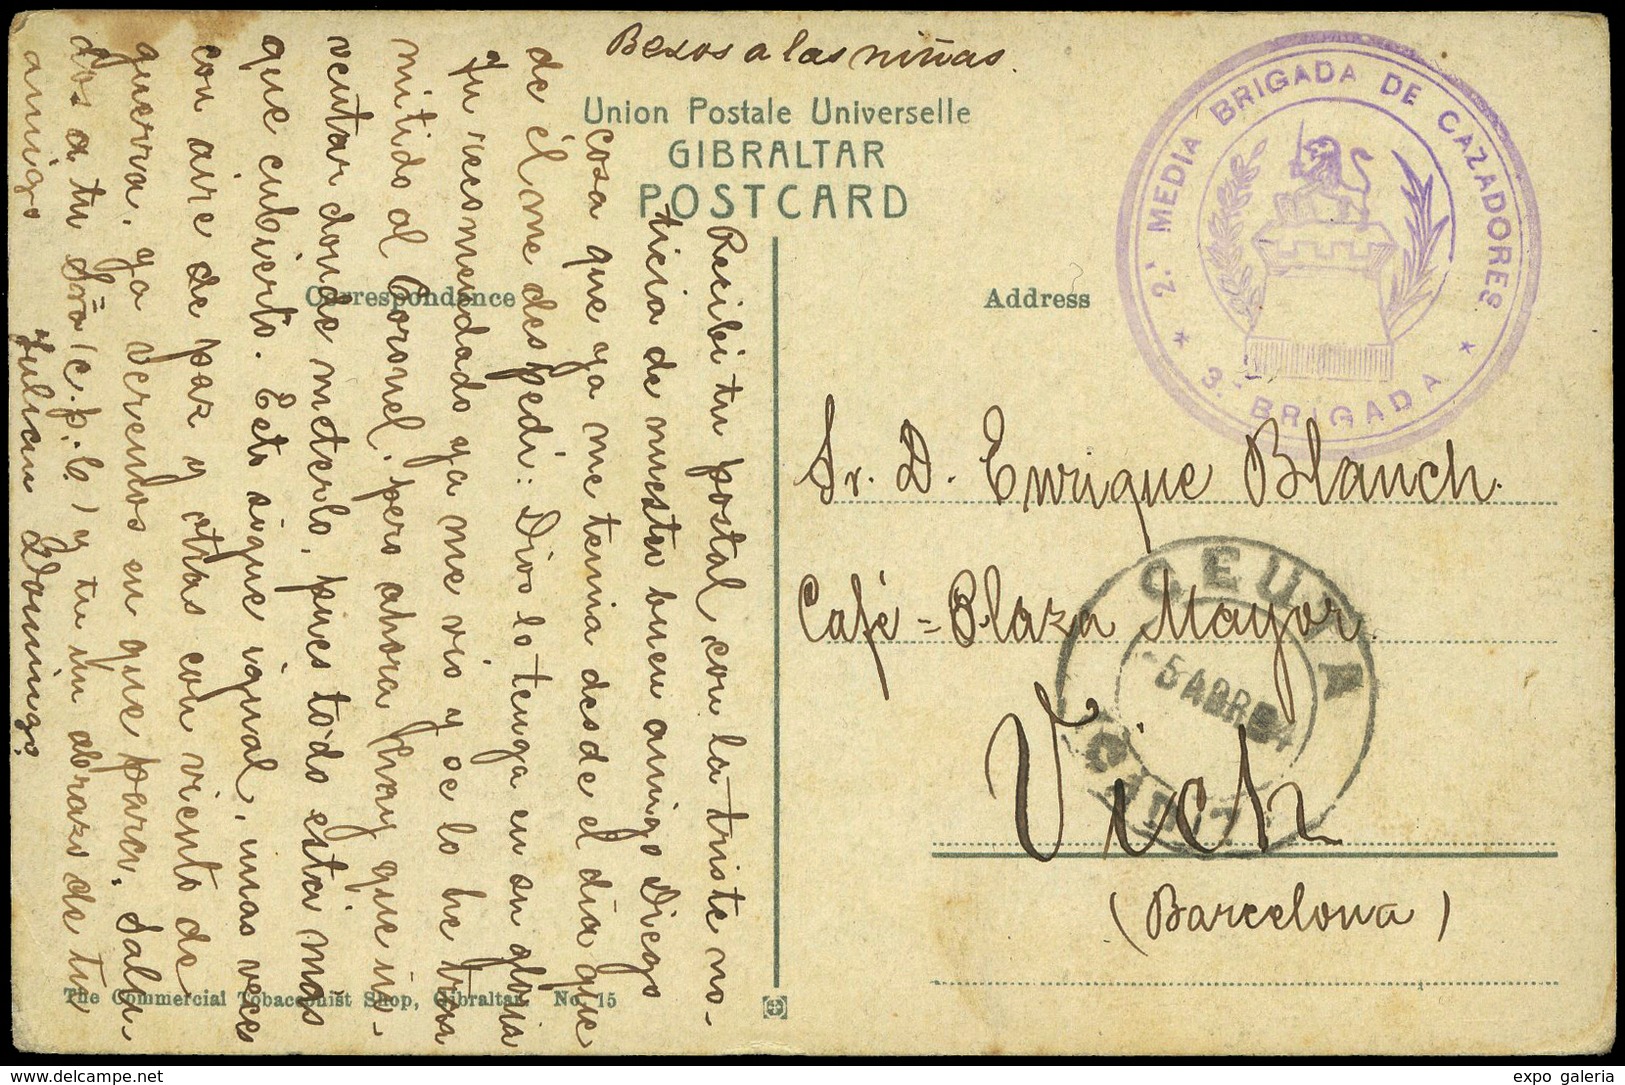 Besos a las niñas.
Union Postale Universelle
GIBRALTAR
POSTCARD
Correspondence
Address
2.ª MEDIA BRIGADA DE CAZADORES
* 3.ª BRIGADA *
Recibi tu postal con la triste no-
ticia de nuestro buen amigo Diego
cosa que ya me temia desde el dia que
de él me despedi: Dios lo tenga en su gloria
Tu recomendado ya me vió y se lo he tras
mitido al Coronel. pero ahora hay que in-
ventar donde meterlo, pues todo esta mas
que cubierto. Esto sigue igual, unas veces
con aire de paz y otras con viento de
guerra. ya veremos en que para. Salu
dos a tu Sra (c.p.b.) y tu un abrazo de tu
amigo
Julian Domingo
Sr. D. Enrique Blanch.
Café = Plaza Mayor.
Vich
(Barcelona)
CEUTA
5 ABR 04
(CADIZ)
The Commercial Tobacconist Shop, Gibraltar. No. 15
www.delcampe.net
expo galeria